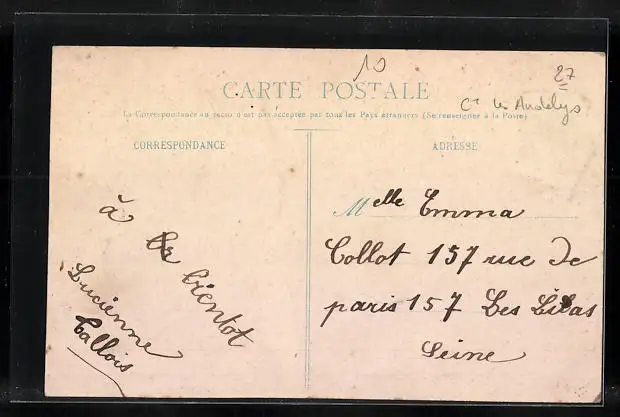 10
27
CARTE POSTALE
Cn Les Andelys
La Correspondance au recto n'est pas acceptée par tous les Pays étrangers (Se renseigner à la Poste)
CORRESPONDANCE
à
bientot
Lucienne
Callois
ADRESSE
Melle Emma
Collot 157 rue de
paris 157 Les Lilas
Seine